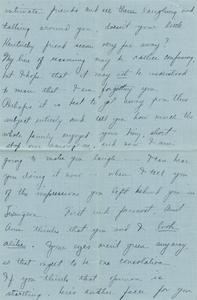 intimate friends and see them laughing and
talking around you, doesn't your little
Kentucky friend seem very far away?
My lines of reasoning may be rather confusing,
but I hope that it may not be understood
to mean that I am forgetting you.
Perhaps it is best to get away from this
subject entirely and tell you how much the
whole family enjoyed your being, short
stop over among us, and now I am
going to make you laugh. I can hear
you doing it now when I tell you
of the impressions you left behind you in
First and foremost, Aunt
Ann thinks that you and I look
alike. Your eyes aren't green anyway
so that ought to be one consolation.
If you think that opinion is
startling, here's another for you